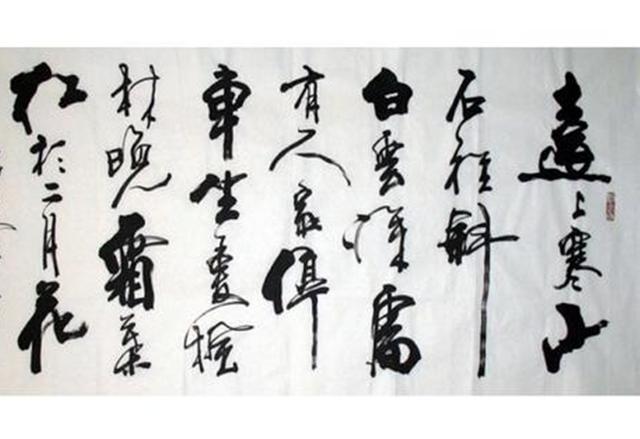 遠上寒山
石徑斜
白雲深處
有人家停
車坐愛楓
林晚霜葉
紅於二月花